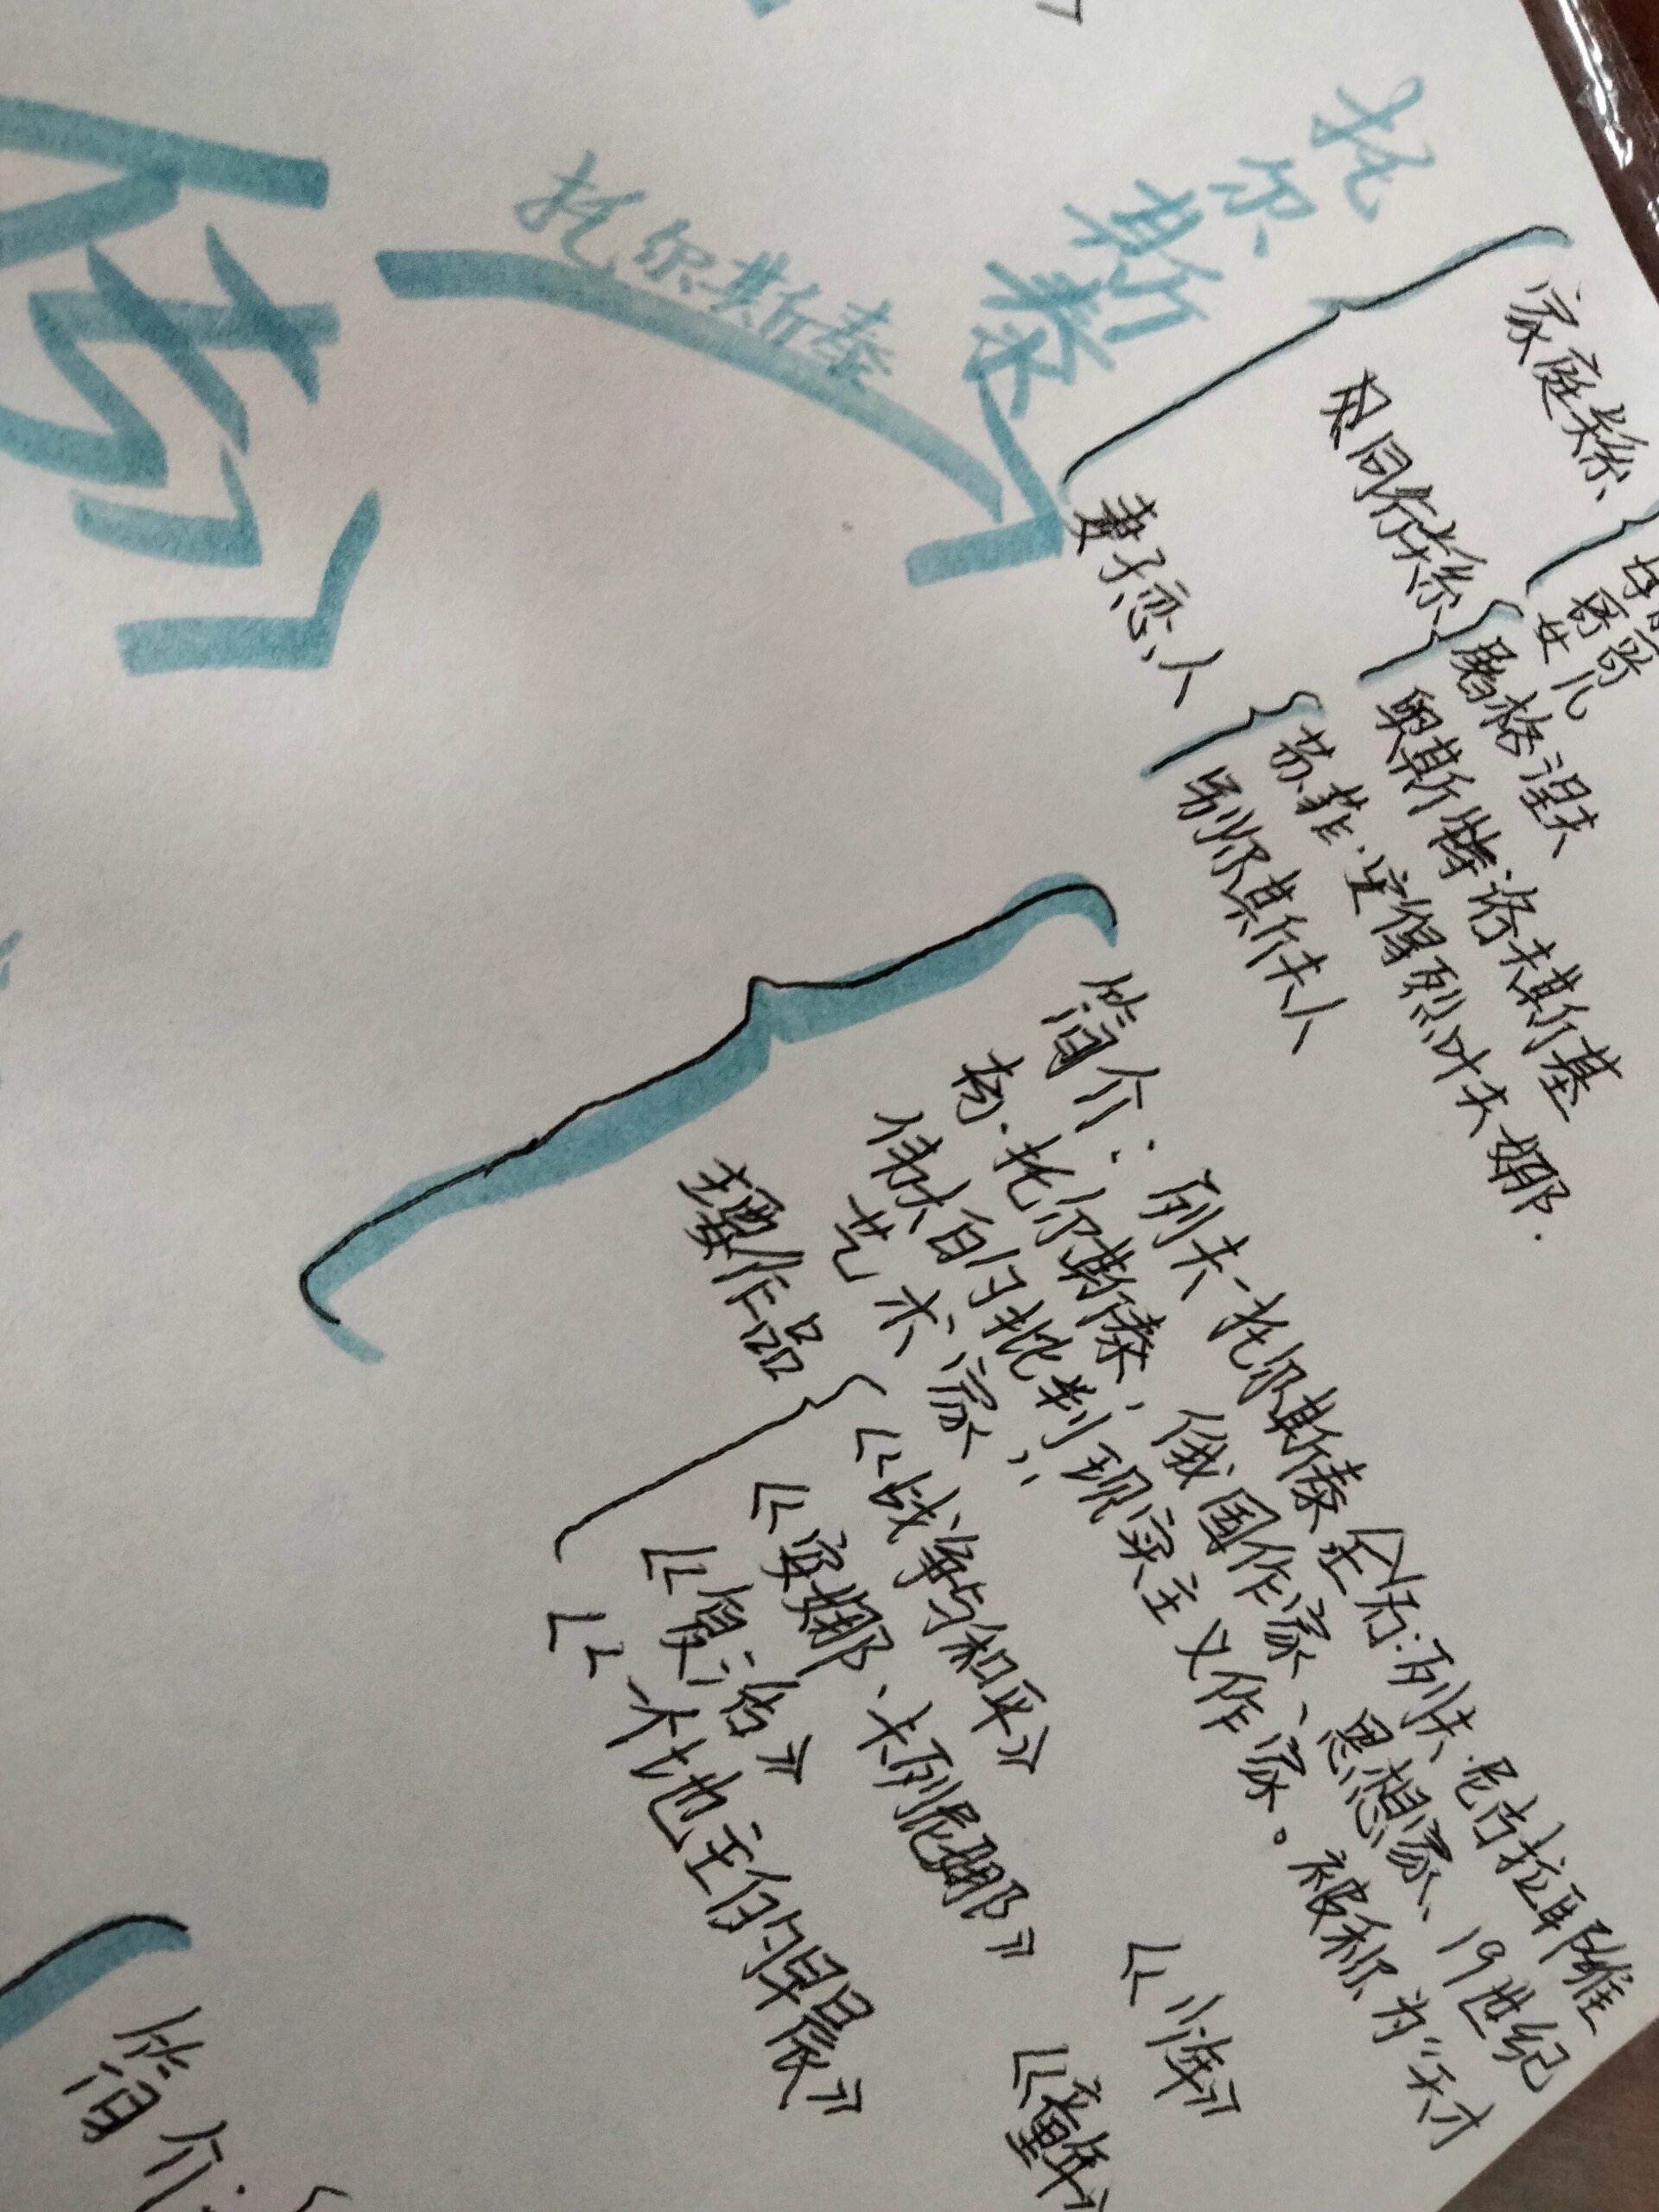 托尔斯泰
托尔斯泰
家庭关系
女儿
哥哥
与同行关系
屠格涅夫
陀斯特诺夫斯基
妻子恋人
苏菲·安得烈叶夫娜.
别尔斯夫人
简介：列夫-托尔斯泰全名：列夫.尼古拉耶维
奇.托尔斯泰,俄国作家、思想家、19世纪
伟大的批判现实主义作家。被称为“天才
艺术家”
主要作品
《战争与和平》
《少年》
《安娜.卡列尼娜》
《童年》
《复活》
《一个地主的早晨》
简介：